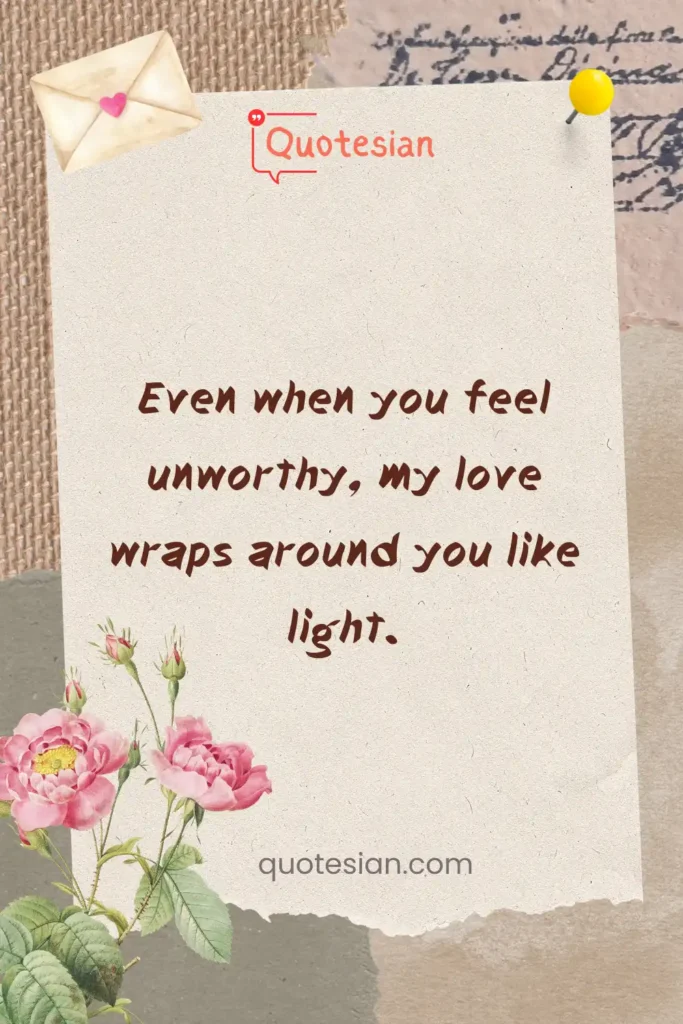 Quotesian
Even when you feel
unworthy, my love
wraps around you like
light.
quotesian.com